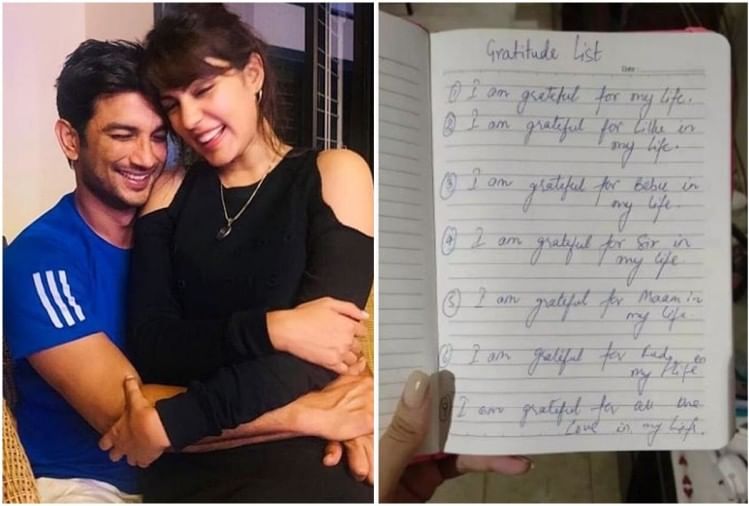 Gratitude List
Date:
① I am grateful for my life.
② I am grateful for Lillu in
my life.
③ I am grateful for Bebu in
my life.
④ I am grateful for Sir in
my life
⑤ I am grateful for Maam in
my life
⑥ I am grateful for in
my life
I am grateful for all the
Love in my life.